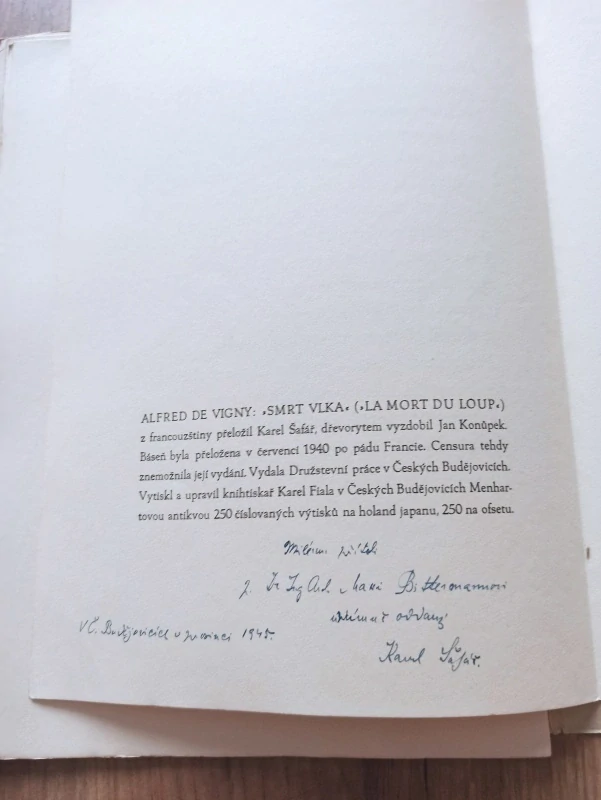 ALFRED DE VIGNY: ›SMRT VLKA‹ (›LA MORT DU LOUP‹)
z francouzštiny přeložil Karel Šafář, dřevorytem vyzdobil Jan Konůpek.
Báseň byla přeložena v červenci 1940 po pádu Francie. Censura tehdy
znemožnila její vydání. Vydala Družstevní práce v Českých Budějovicích.
Vytiskl a upravil knihtiskař Karel Fiala v Českých Budějovicích Menhar-
tovou antikvou 250 číslovaných výtisků na holand japanu, 250 na ofsetu.
Milému příteli
Dr Ing Arch. Bittermannovi
oddaný
V Č. Budějovicích v prosinci 1945.
Karel Šafář.